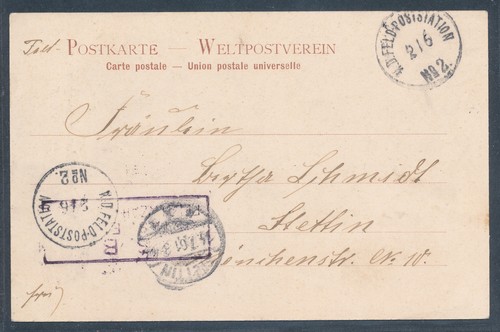 Feld- POSTKARTE — WELTPOSTVEREIN
Carte postale — Union postale universelle
K.D.FELD-POSTSTATION
2/6
No 2.
Fräulein
Bertha Schmidt
Stettin
K.D.FELD-POSTSTATION
2/6
No 2.
STETTIN
No 10.
frei